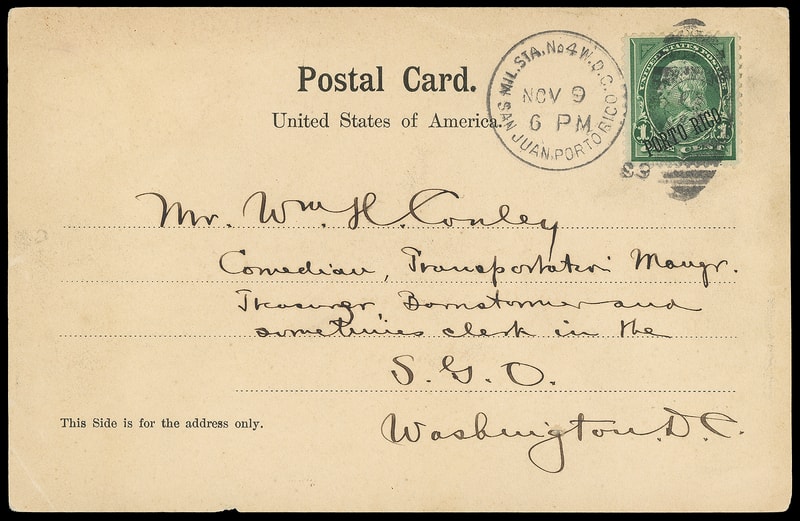 Postal Card.
United States of America.
MIL. STA. No 4 W.D.C.O.
NOV 9
6 PM
SAN JUAN, PORTO RICO
UNITED STATES POSTAGE
PORTO RICO
1 CENT 1
Mr. Wm. H. Conley
Comedian, Transportation Mangr.
Treasurer, Barnstormer and
sometimes clerk in the
S. G. O.
This Side is for the address only.
Washington. D. C.